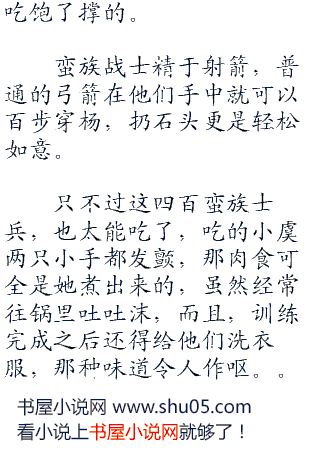 吃饱了撑的。
蛮族战士精于射箭，普
通的弓箭在他们手中就可以
百步穿杨，扔石头更是轻松
如意。
只不过这四百蛮族士
兵，也太能吃了，吃的小虞
两只小手都发颤，那肉食可
全是她煮出来的，虽然经常
往锅里吐吐沫，而且，训练
完成之后还得给他们洗衣
服，那种味道令人作呕。。
书屋小说网 www.shu05.com
看小说上书屋小说网就够了！